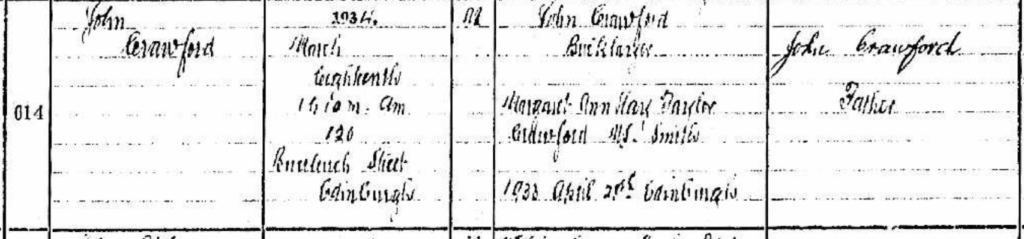 014
John
Crawford
1934.
March
Eighteenth
1h 10m. am
120
Buccleuch Street
Edinburgh
M
John Crawford
Bricklayer
Margaret Ann Mary Taylor
Crawford M.S. Smith
1933 April 21st Edinburgh
John Crawford
Father